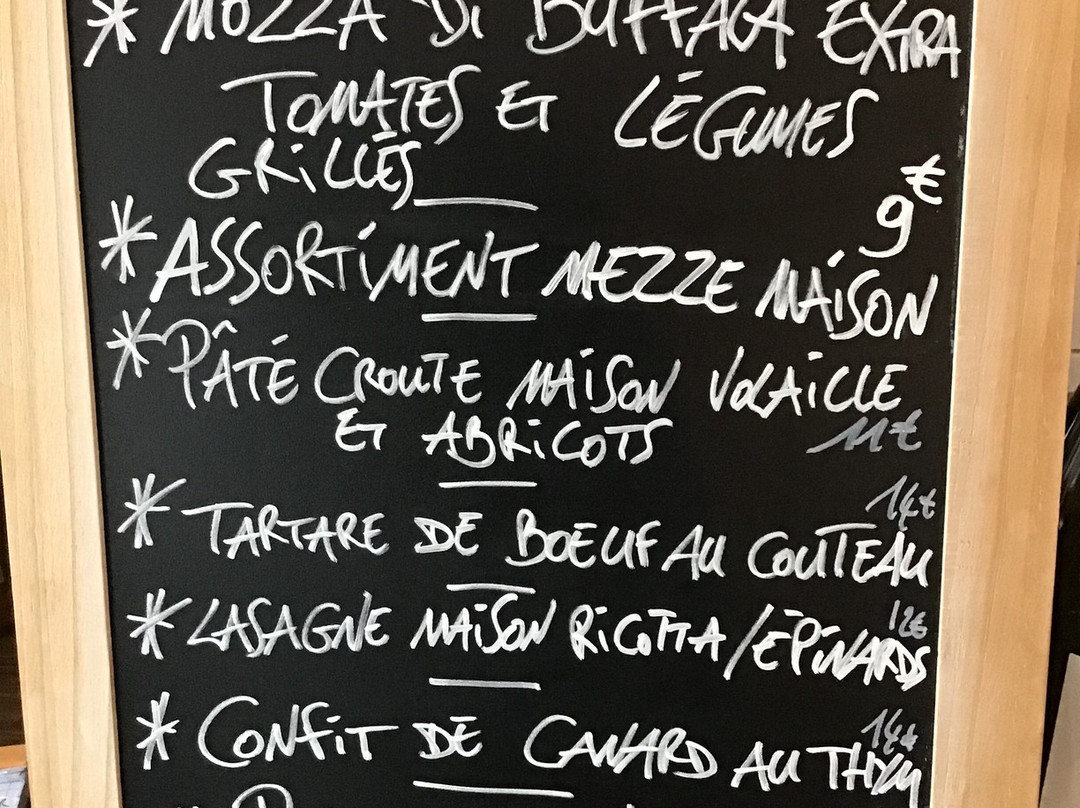 * MOZZA DI BUFFALA EXTRA
TOMATES ET LÉGUMES
GRILLÉS
9€
* ASSORTIMENT MEZZE MAISON
* PÂTÉ CROUTE MAISON VOLAILLE
ET ABRICOTS 11€
14€
* TARTARE DE BOEUF AU COUTEAU
12€
* LASAGNE MAISON RICOTTA/ÉPINARDS
14€
* CONFIT DE CANARD AU THYM